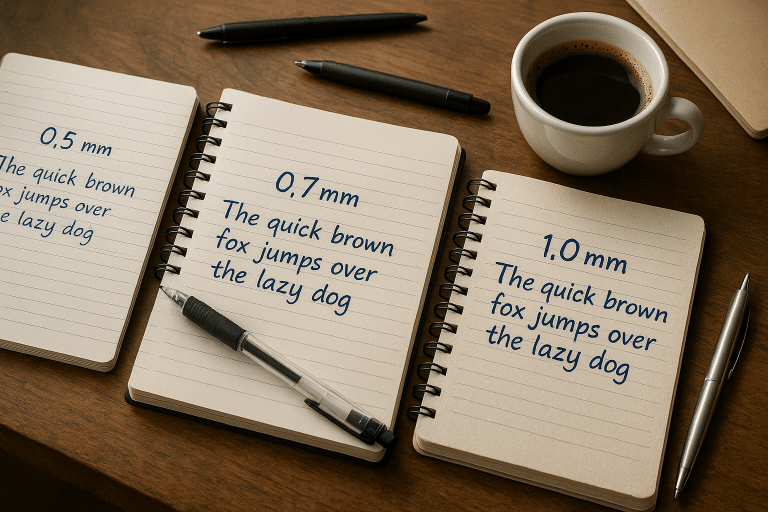 0.5 mm
The quick brown
jumps over
lazy dog
0.7 mm
The quick brown
fox jumps over
the lazy dog
1.0 mm
The quick brown
fox jumps over
the lazy dog